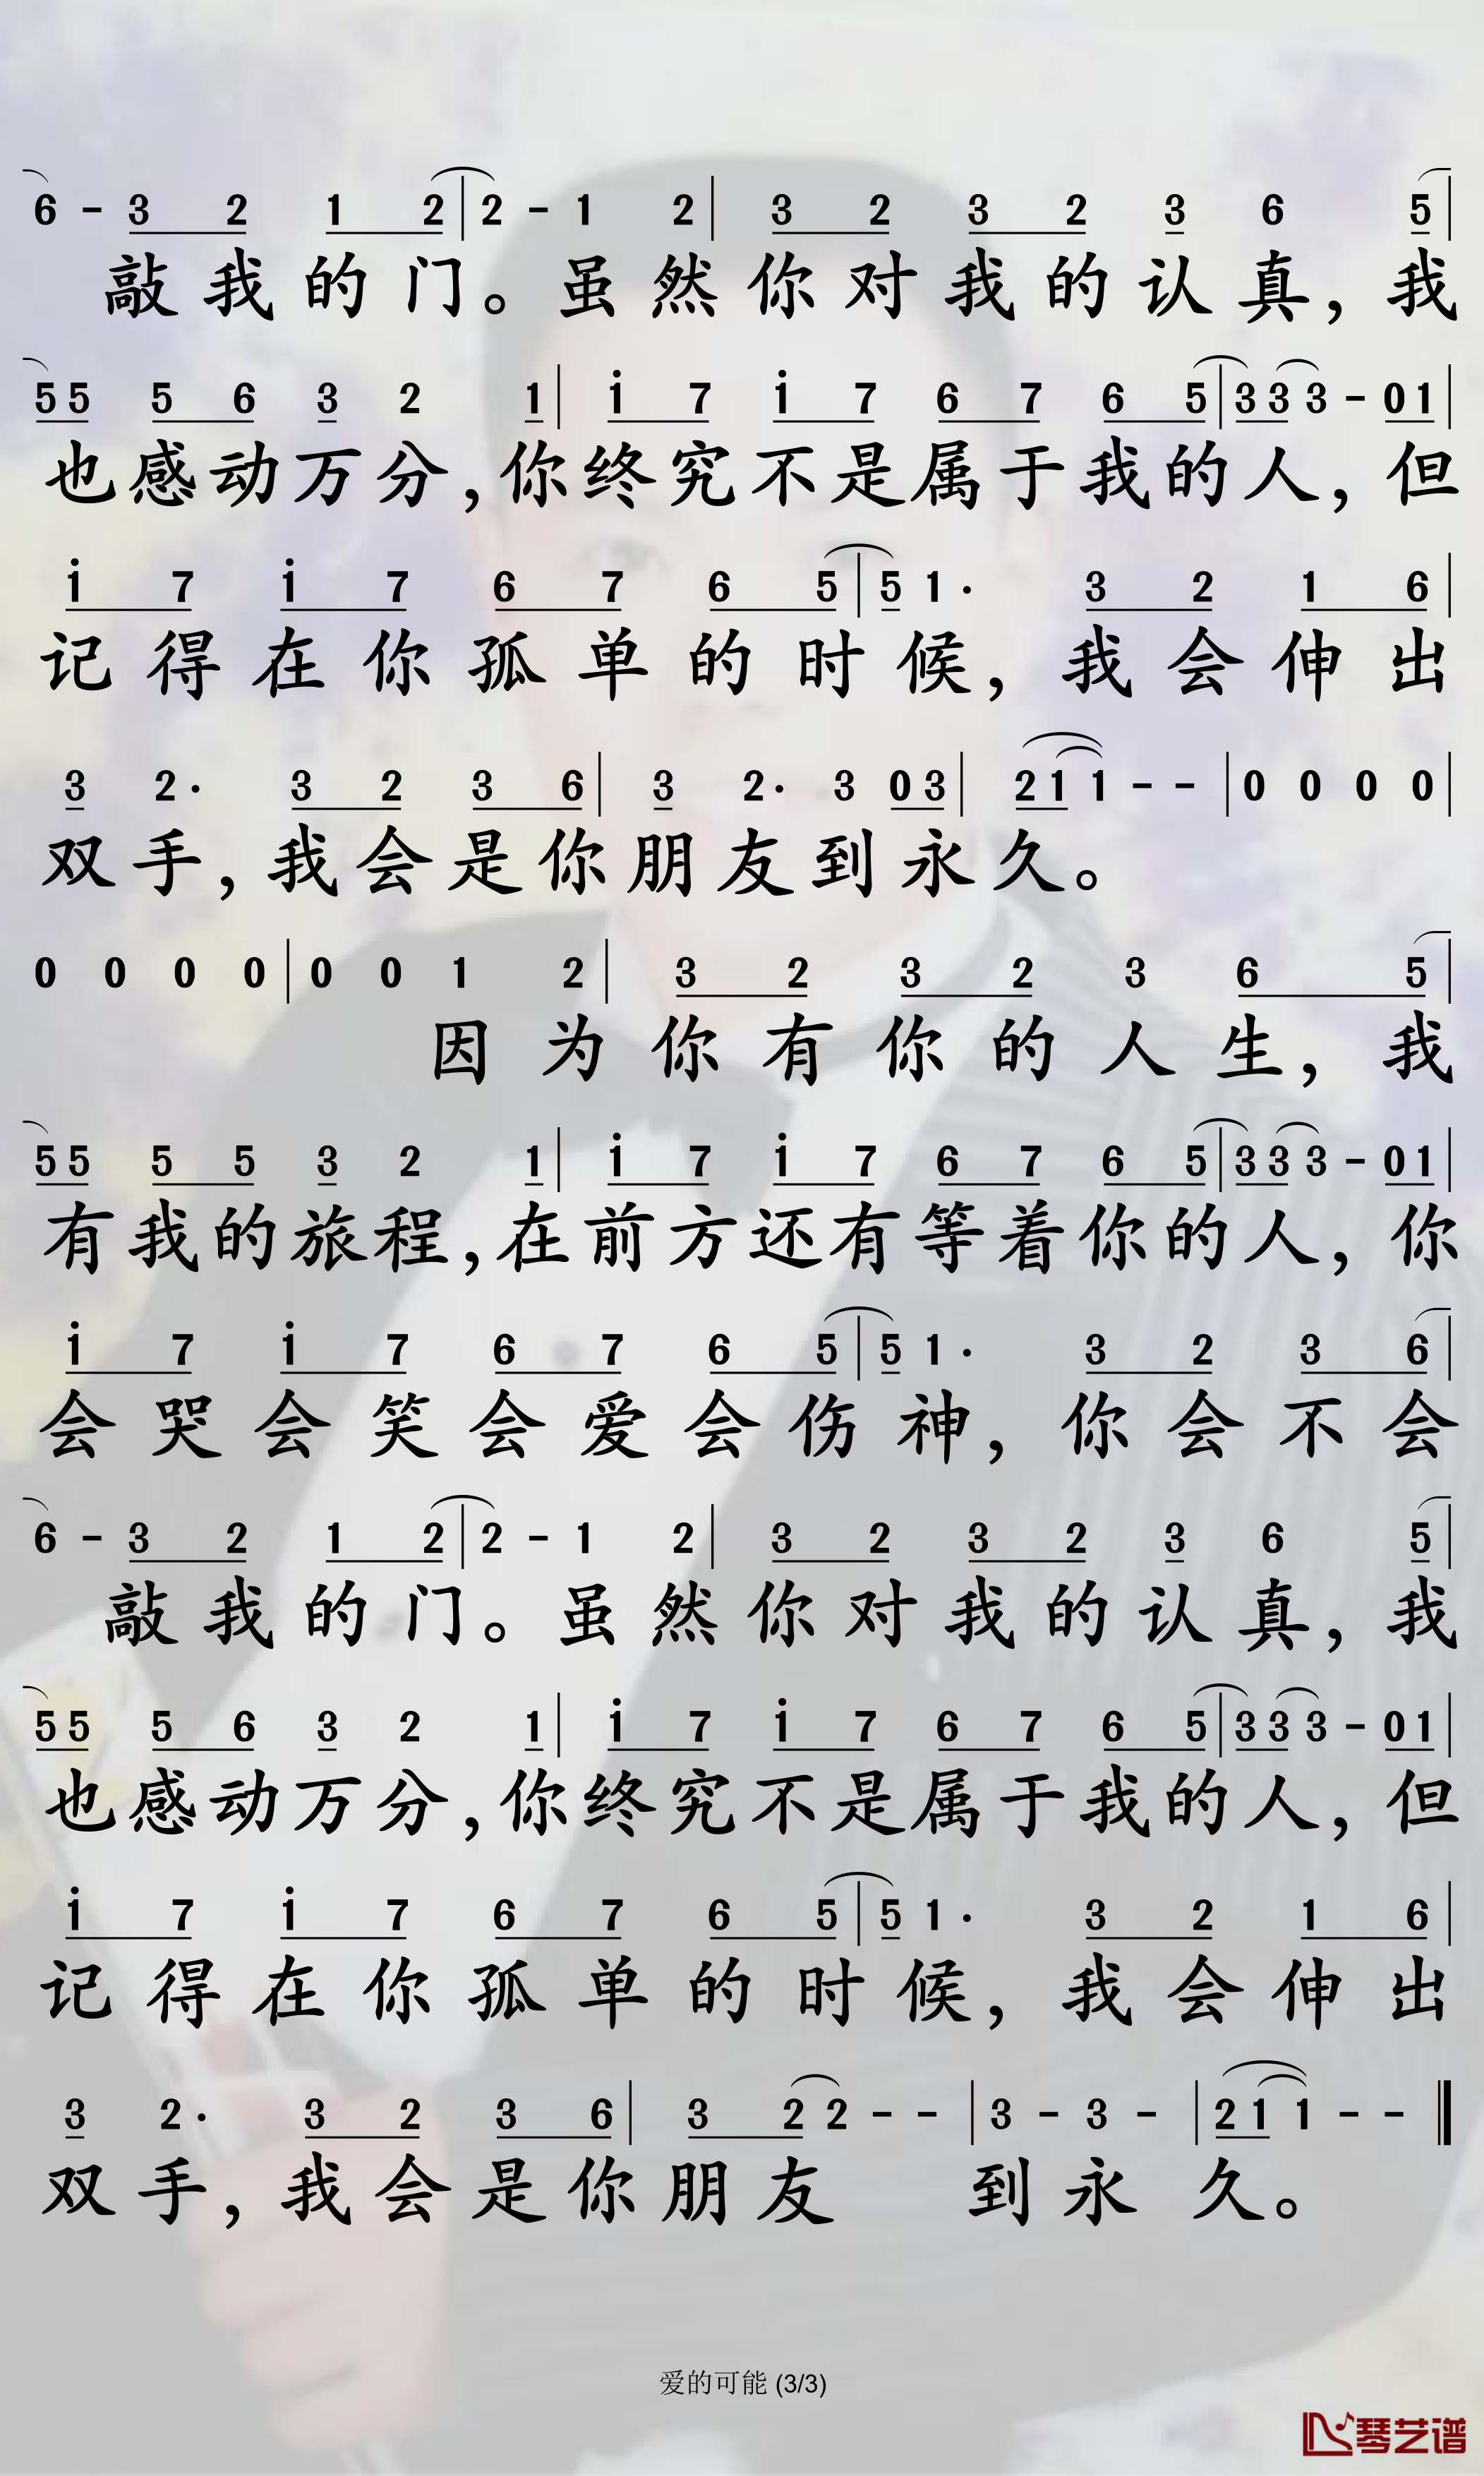 6 - 3 2 1 2 | 2 - 1 2 | 3 2 3 2 3 6 5 |
敲我的门。虽然你对我的认真，我
5 5 5 6 3 2 1 | i 7 i 7 6 7 6 5 | 3 3 3 - 0 1 |
也感动万分，你终究不是属于我的人，但
i 7 i 7 6 7 6 5 | 5 1 · 3 2 1 6 |
记得在你孤单的时候，我会伸出
3 2 · 3 2 3 6 | 3 2 · 3 0 3 | 2 1 1 - - | 0 0 0 0 |
双手，我会是你朋友到永久。
0 0 0 0 | 0 0 1 2 | 3 2 3 2 3 6 5 |
因为你有你的人生，我
5 5 5 5 3 2 1 | i 7 i 7 6 7 6 5 | 3 3 3 - 0 1 |
有我的旅程，在前方还有等着你的人，你
i 7 i 7 6 7 6 5 | 5 1 · 3 2 3 6 |
会哭会笑会爱会伤神，你会不会
6 - 3 2 1 2 | 2 - 1 2 | 3 2 3 2 3 6 5 |
敲我的门。虽然你对我的认真，我
5 5 5 6 3 2 1 | i 7 i 7 6 7 6 5 | 3 3 3 - 0 1 |
也感动万分，你终究不是属于我的人，但
i 7 i 7 6 7 6 5 | 5 1 · 3 2 1 6 |
记得在你孤单的时候，我会伸出
3 2 · 3 2 3 6 | 3 2 2 - - | 3 - 3 - | 2 1 1 - - ‖
双手，我会是你朋友 到永久。
爱的可能 (3/3)
琴艺谱